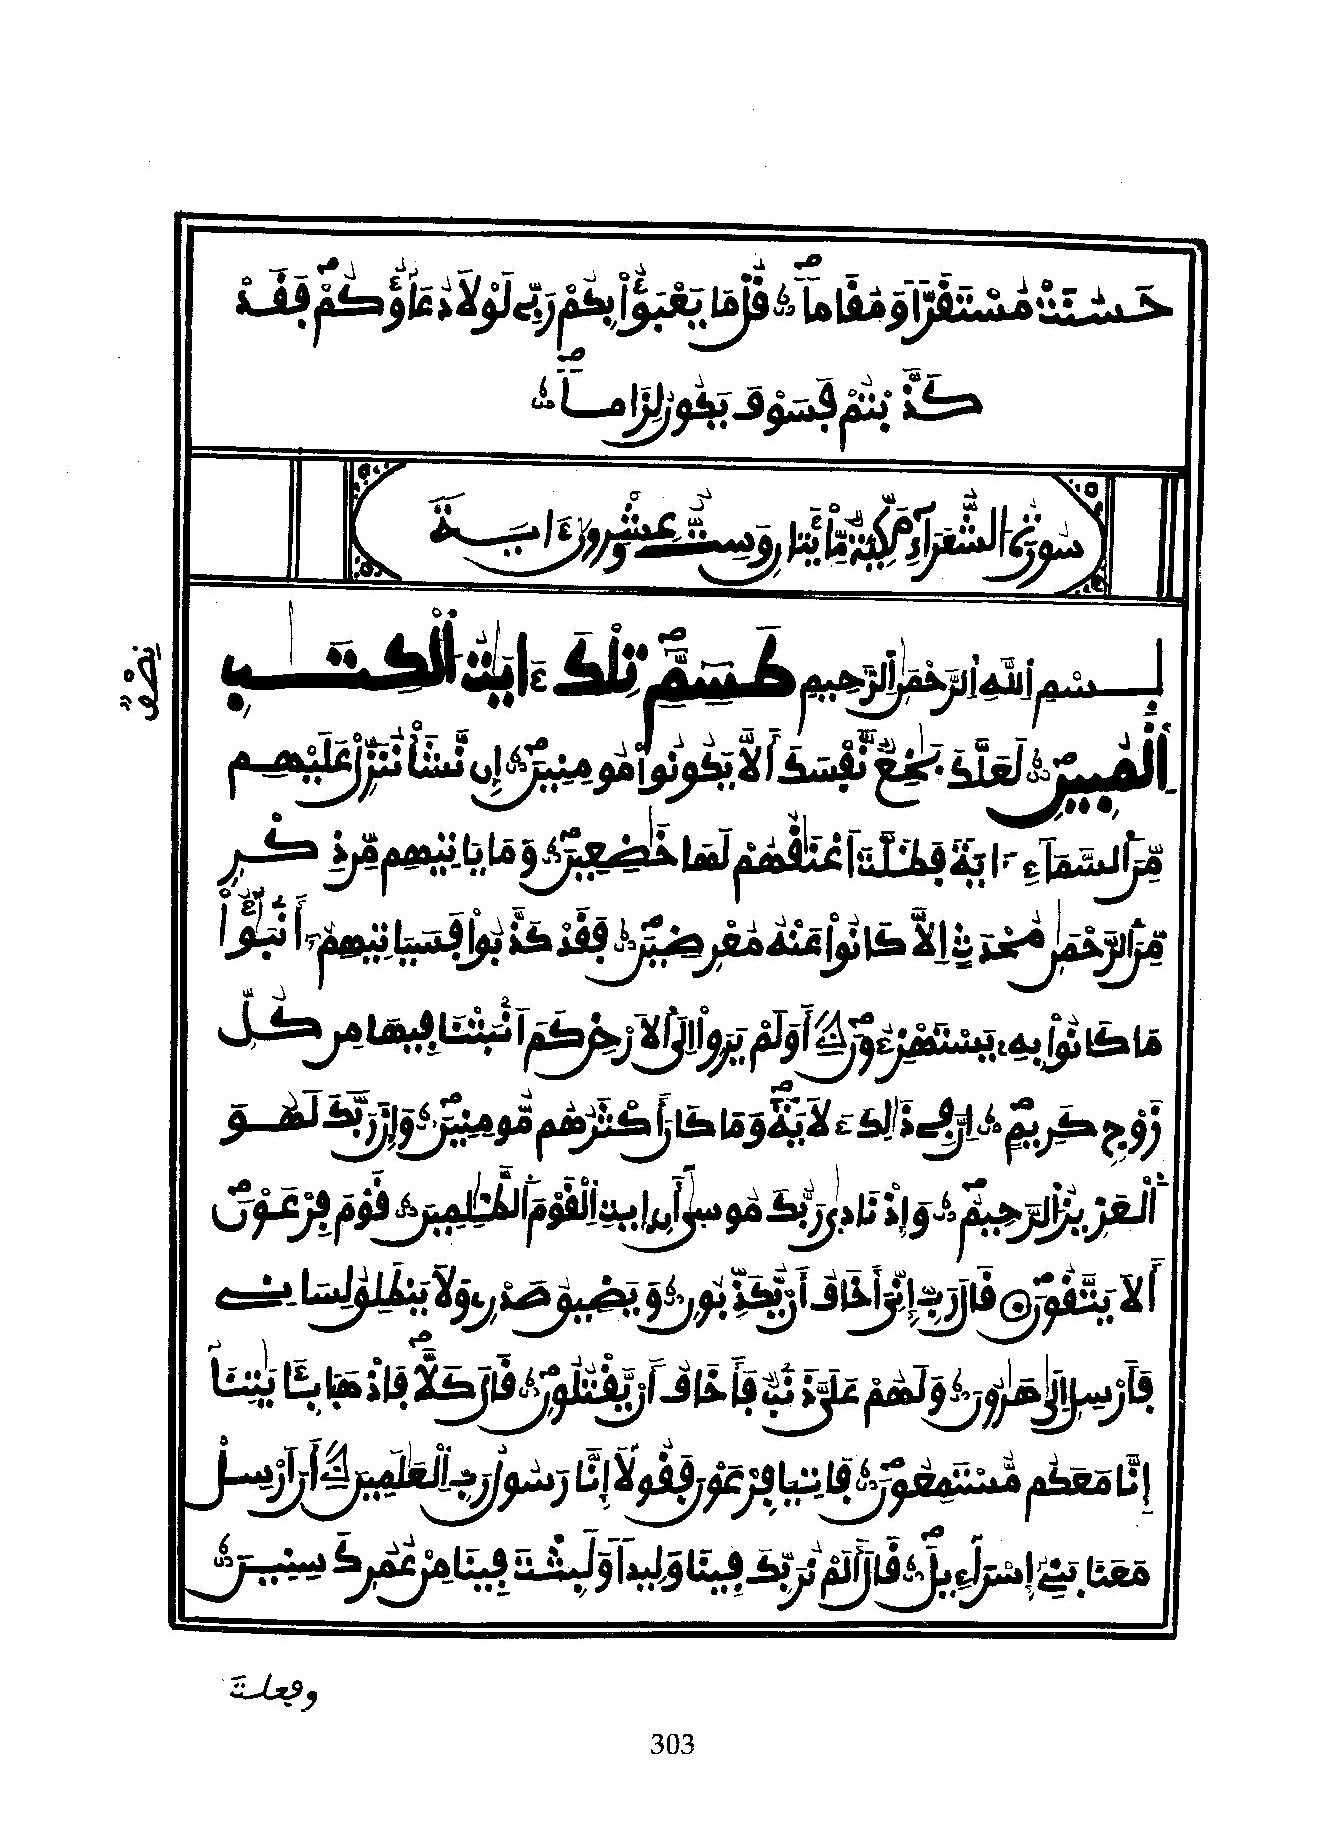 حَسُنَتْ مُسْتَقَرّاً وَمُقَاماً قُلْ مَا يَعْبَؤُاْ بِكُمْ رَبِّے لَوْلَا دُعَآؤُكُمْ فَقَدْ
كَذَّبْتُمْ فَسَوْفَ يَكُونُ لِزَاماً
سُورَةُ الشُّعَرَآءِ مَكِّيَّةٌ مِّاْئَتَانِ وَسِتٌّ وَعِشْرُونَ ءَايَةً
نِصْفٌ
بِسْمِ اِ۬للَّهِ اِ۬لرَّحْمَٰنِ اِ۬لرَّحِيمِ طَسِٓمِّٓ تِلْكَ ءَايَٰتُ اُ۬لْكِتَٰبِ
اِ۬لْمُبِينِ لَعَلَّكَ بَٰخِعٌ نَّفْسَكَ أَلَّا يَكُونُواْ مُومِنِينَ إِن نَّشَأْ نُنَزِّلْ عَلَيْهِم
مِّنَ اَ۬لسَّمَآءِ ايَةً فَظَلَّتَ اَعْنَٰقُهُمْ لَهَا خَٰضِعِينَ وَمَا يَاتِيهِم مِّن ذِكْرٍ
مِّنَ اَ۬لرَّحْمَٰنِ مُحْدَثٍ اِلَّا كَانُواْ عَنْهُ مُعْرِضِينَ فَقَدْ كَذَّبُواْ فَسَيَاتِيهِمُ أَنۢبَٰٓؤُاْ
مَا كَانُواْ بِهِۦ يَسْتَهْزِءُونَ أَوَلَمْ يَرَوِاْ اِلَى اَ۬لَارْضِ كَمَ اَنۢبَتْنَا فِيهَا مِن كُلِّ
زَوْجٍ كَرِيمٍ اِنَّ فِے ذَٰلِكَ ءَلَايَةً وَمَا كَانَ أَكْثَرُهُم مُّومِنِينَ وَإِنَّ رَبَّكَ لَهُوَ
اَ۬لْعَزِيزُ اُ۬لرَّحِيمُ وَإِذْ نَادَىٰ رَبُّكَ مُوسَىٰٓ أَنِ اِ۪يتِ اِ۬لْقَوْمَ اَ۬لظَّٰلِمِينَ قَوْمَ فِرْعَوْنَ
أَلَا يَتَّقُونَ قَالَ رَبِّ إِنِّيَ أَخَافُ أَنْ يُّكَذِّبُونِ وَيَضِيقُ صَدْرِے وَلَا يَنطَلِقُ لِسَانِے
فَأَرْسِلِ اِلَىٰ هَٰرُونَ وَلَهُمْ عَلَيَّ ذَنۢبٌ فَأَخَافُ أَنْ يَّقْتُلُونِ قَالَ كَلَّا فَاذْهَبَا بِـَٔايَٰتِنَآ
إِنَّا مَعَكُم مُّسْتَمِعُونَ فَاتِيَا فِرْعَوْنَ فَقُولَآ إِنَّا رَسُولُ رَبِّ اِ۬لْعَٰلَمِينَ أَنَ اَرْسِلْ
مَعَنَا بَنِےٓ إِسْرَآءِيلَ قَالَ أَلَمْ نُرَبِّكَ فِينَا وَلِيداً وَلَبِثْتَ فِينَا مِنْ عُمُرِكَ سِنِينَ
وفعلت
303